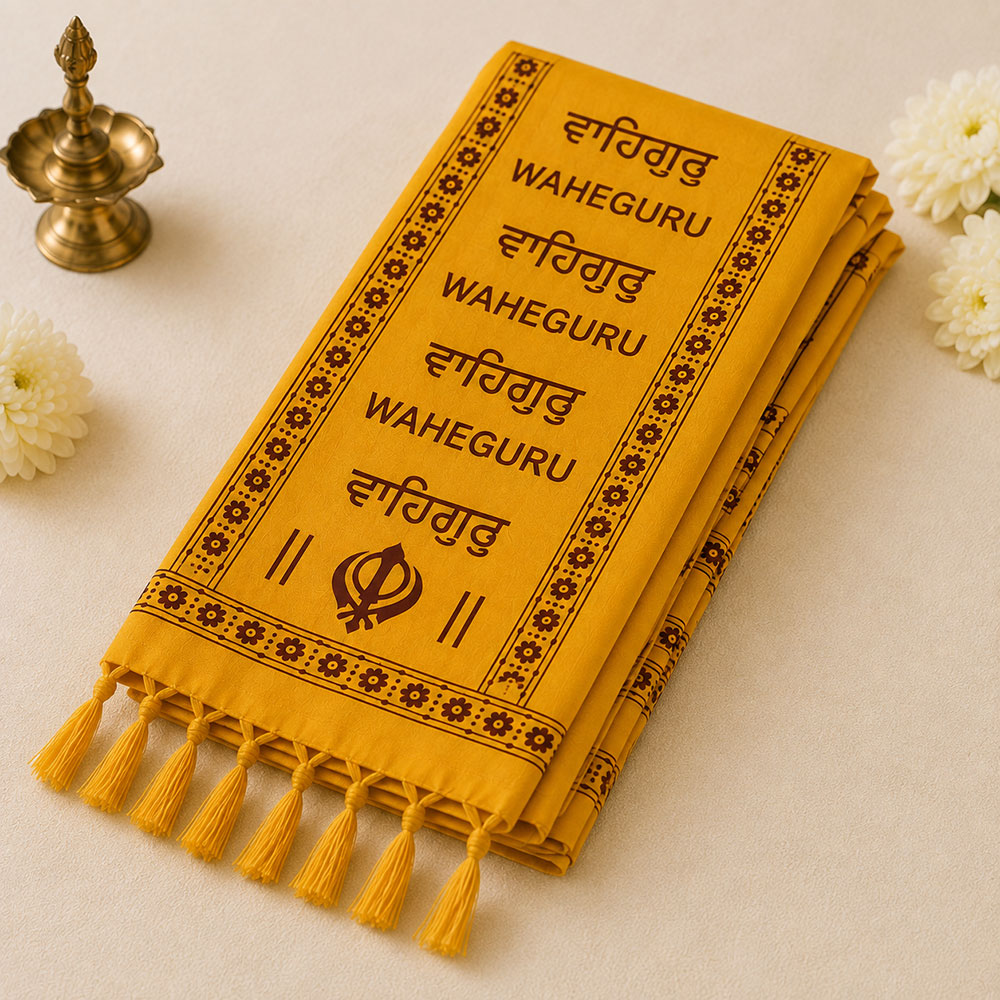 ਵਾਹਿਗੁਰੁ
WAHEGURU
ਵਾਹਿਗੁਰੁ
WAHEGURU
ਵਾਹਿਗੁਰੁ
WAHEGURU
ਵਾਹਿਗੁਰੁ
॥ ॥